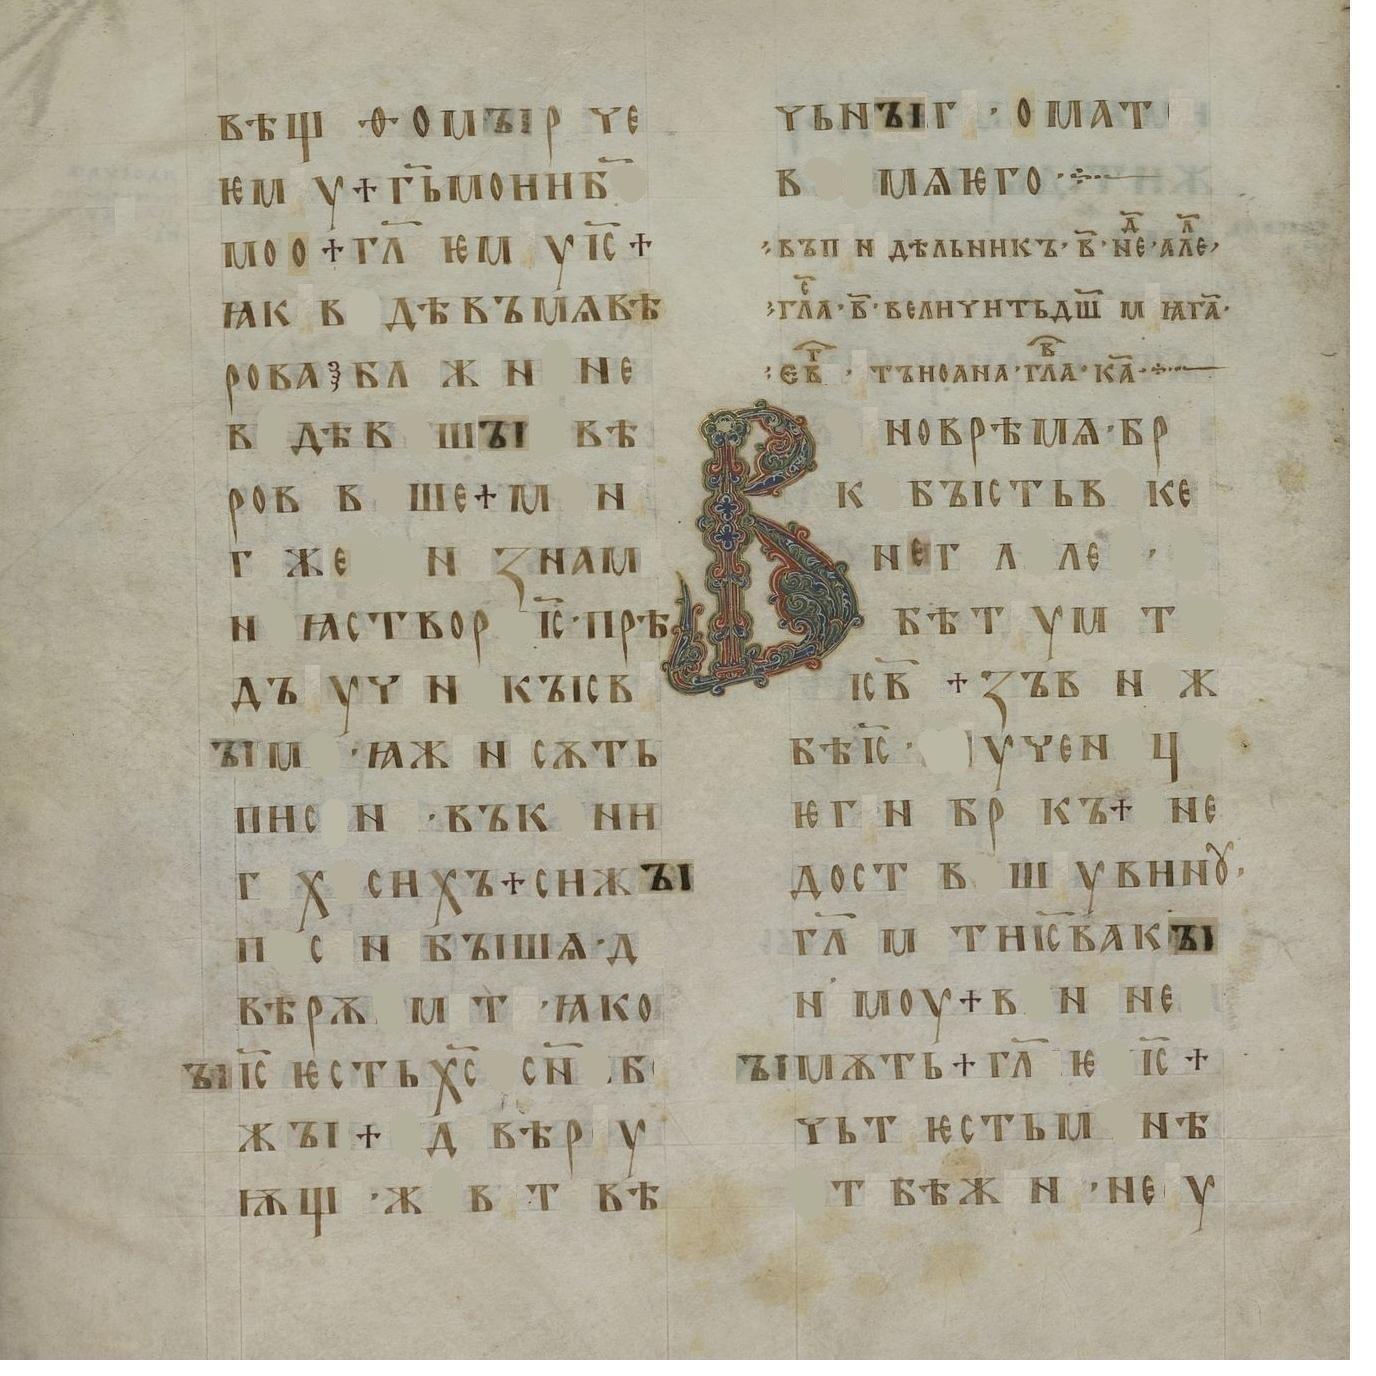 вѣщ ѳомъı р че
ѥм у+г҃ьмонı҃б
моо +гл҃ ѥм уıс҃+
ꙗк в дѣвъмѧвѣ
рова ꙁ бл ж н не
в дѣв шъı вѣ
ров в ше+м н
г же н ꙁнам
н ꙗствор ıс҃·прѣ
дъ уч н къıсв
ъıм ·ꙗж н сѫть
пис н ·вък ни
г х сихъ+сижъı
п с н бъıшѧ·д
вѣрѫ м т ·ꙗко
ъı ıс҃ ѥстьхс҃ сн҃ б
жъı+ д вѣр у
ѭщ ·ж в т вѣ
чьнъıг ·омат
в мѧѥго
въп н дѣльникъ·в҃·не·але
гла·в҃·величитьдш҃ м ꙗга҃
ев҃ · тъиоана·гла·ка҃
новрѣмѧ·бр
к бъıстьв ке
нег л ле ·
бѣт ум т
ıсв҃ +ꙁъв н ж
бѣıс҃· учен ц
ѥг н бр къ+ не
дост в ш увинꙋ·
гл҃ м тиıс҃вакъı
н моу+в н не
ъıмѫть+гл҃ ѥ ıс҃+
чьт ѥстьм нѣ
т бѣж н ·не у